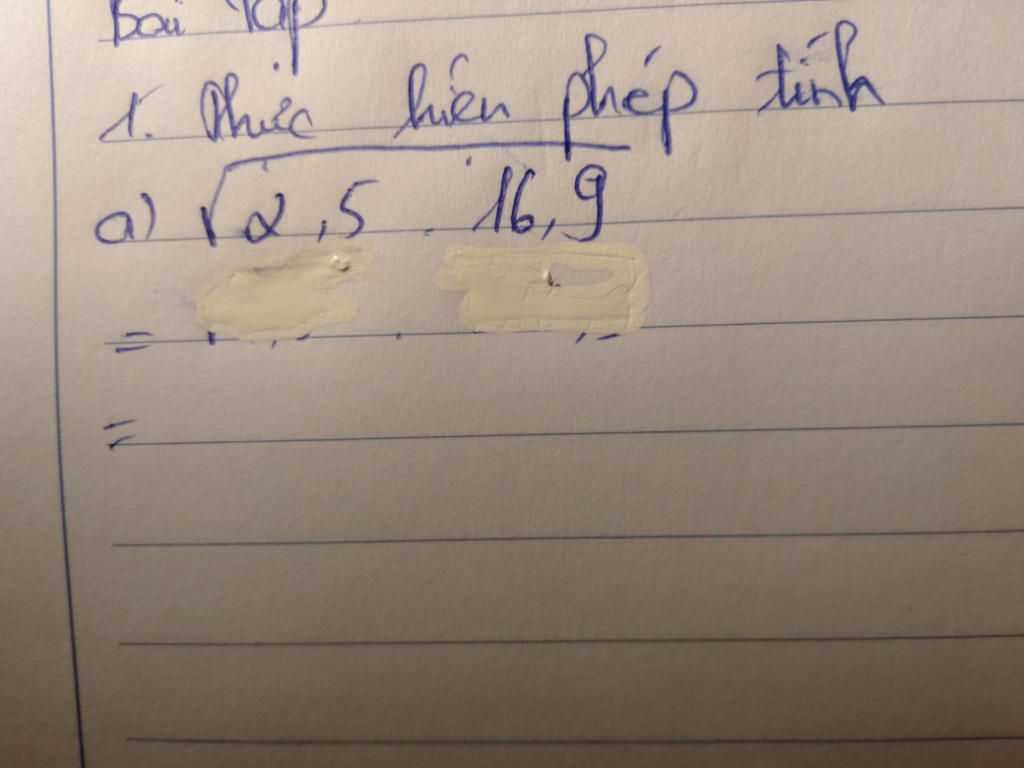 Bài tập
1. Thực hiện phép tính
a) √2,5 . 16,9
=
=